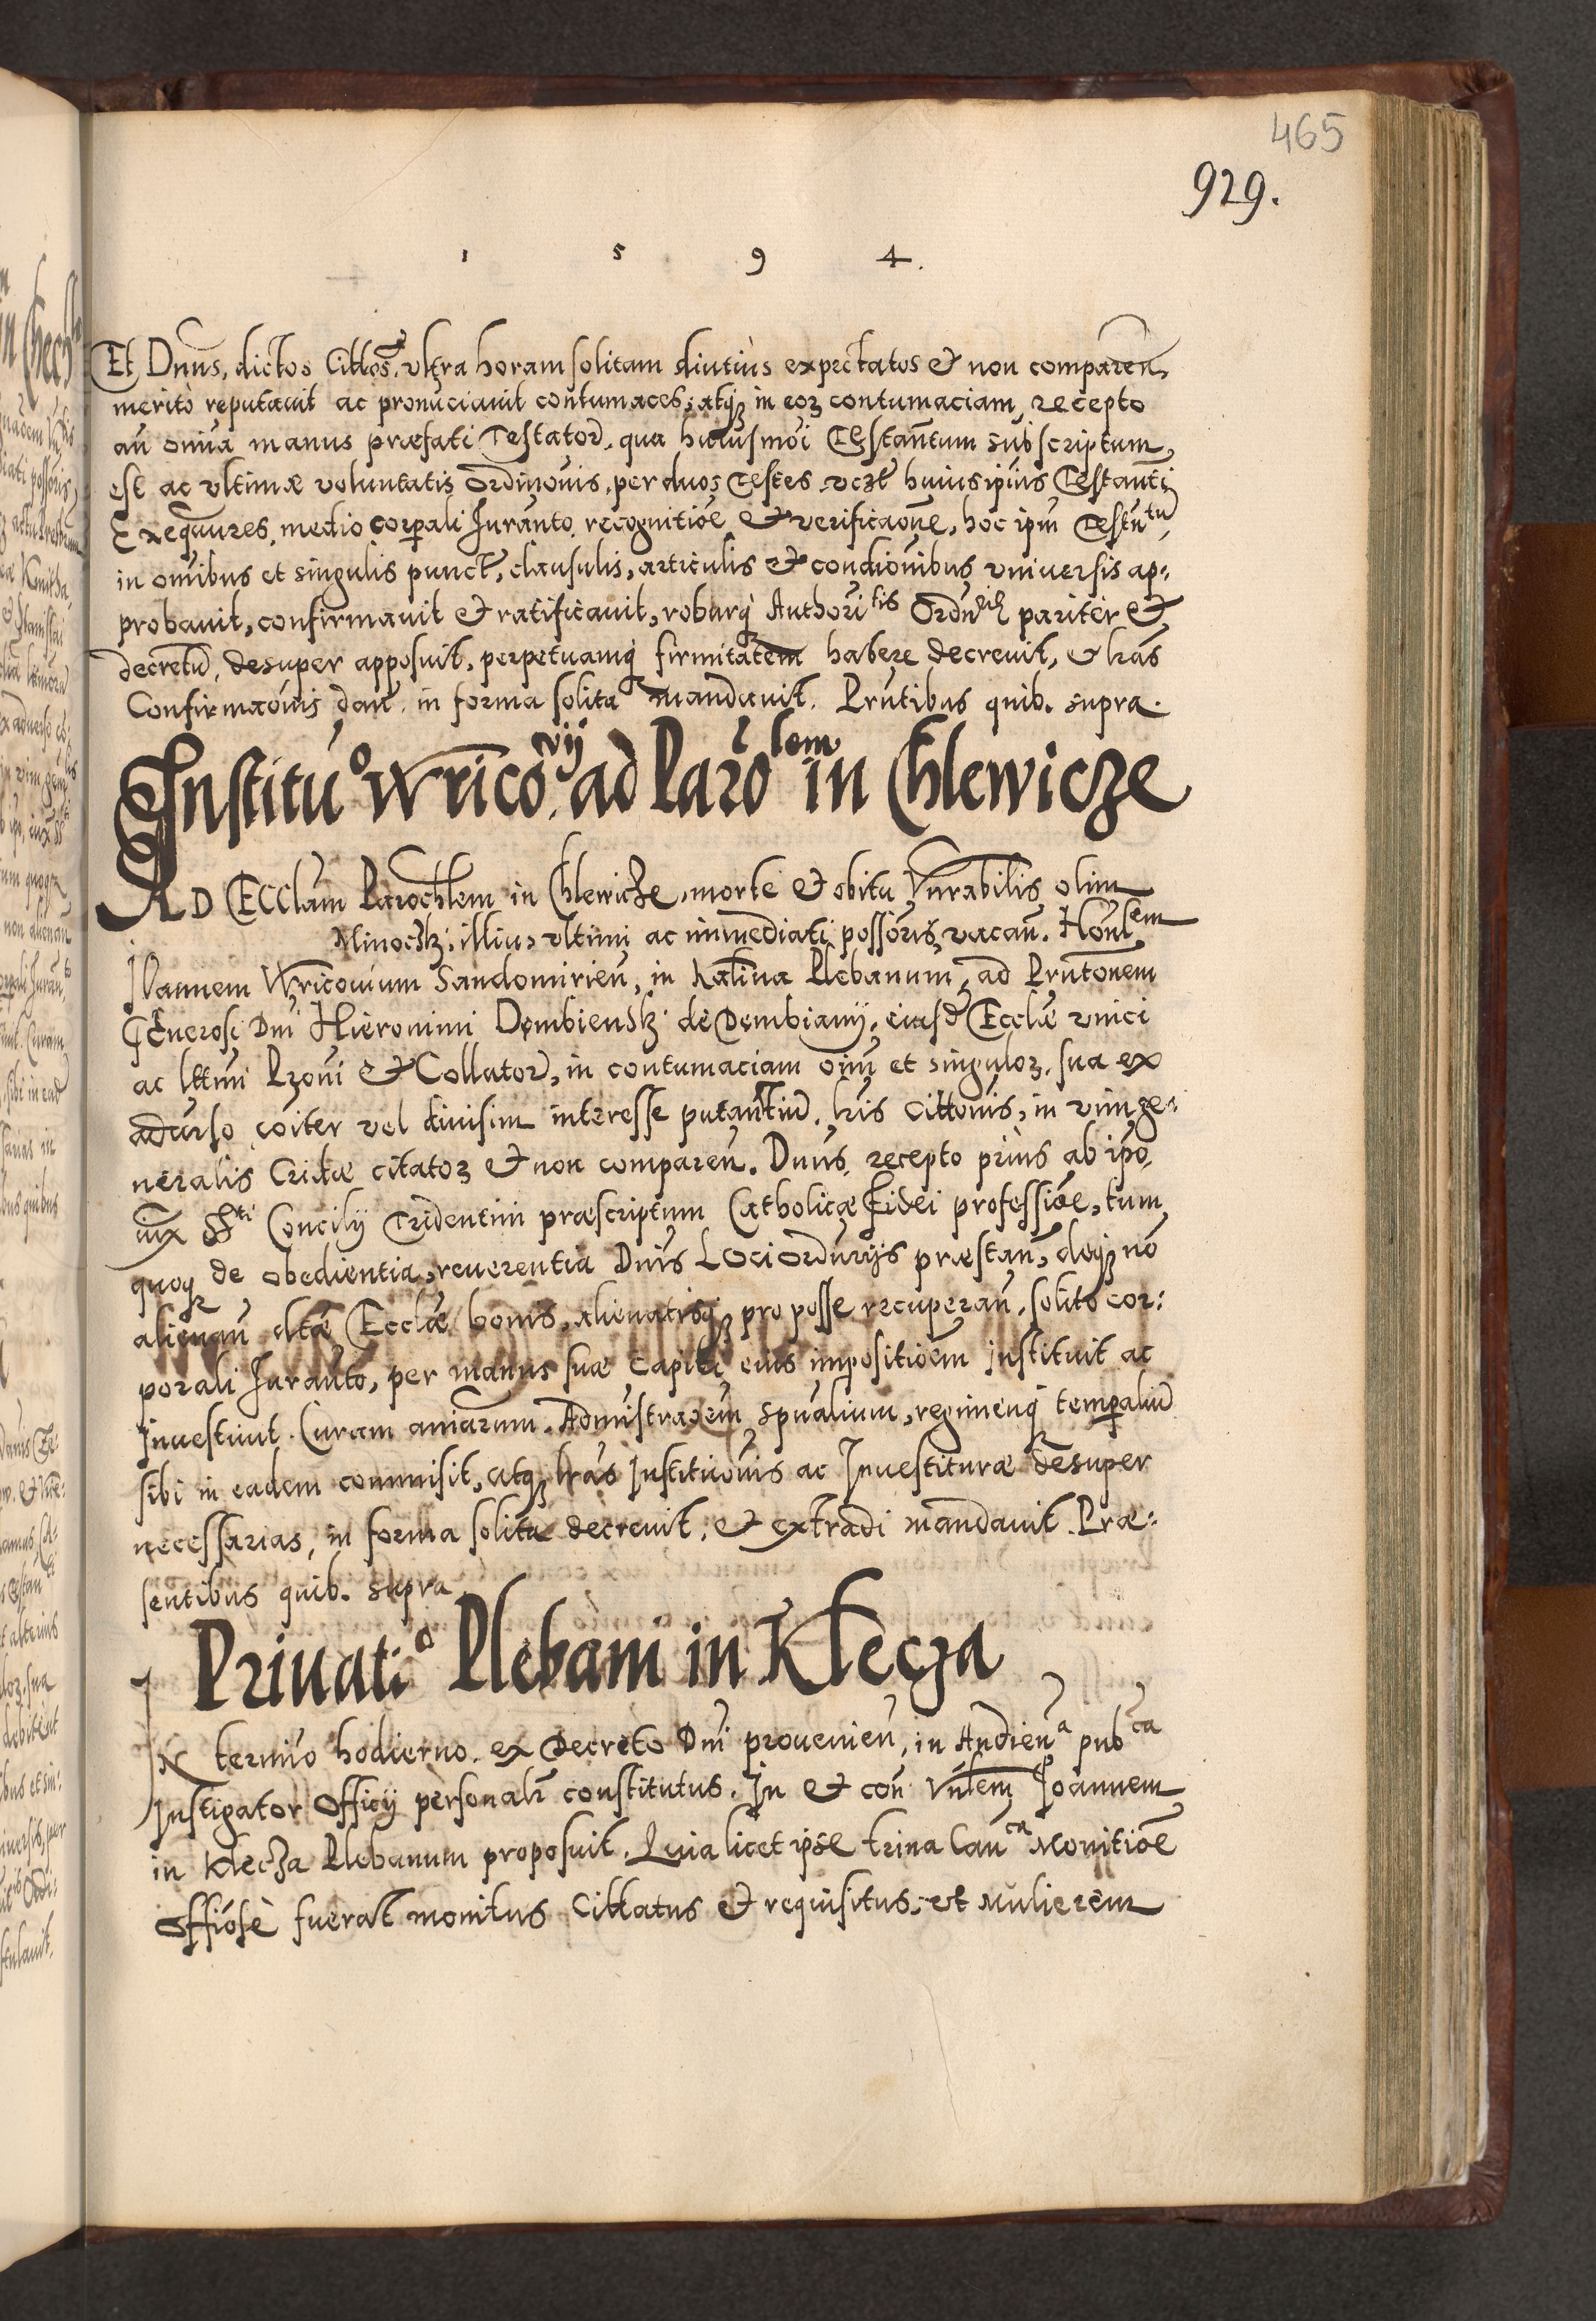 465
929.
1 5 9 4.
Et Dnus, dictos Cittos, vltra horam solitam diutius expectatos et non comparen,
merito reputauit ac pronunciauit contumaces, atqꝫ in eoꝝ contumaciam, recepto
an omnia manus præfati Testator. qua huiusmoi Testantum subscriptum
est ac vltimæ voluntatis Ordinouis, per duos testes vczt huius ipsius Testanti
Exequures, medio corpali Juranto, recognitioe et verificaone, hoc ipm Testntu,
in omibus et singulis punct, clausulis, articulis et condionibus vniuersis ap:
probauit, confirmauit et ratificauit, roburqꝫ Authoritis Ordnrie pariter et
decretu, desuper apposuit, perpetuamqꝫ firmitatem habere decreuit, et lras
Confirmaonis dan. in forma solita mandauit. Prntibus quib. supra.
Institúo Wricouij ad Parolem in Chlewicze
AD Ecclam Parochlem in Chlewicze, morte et obitu Vnrabilis olim
Minoczk. illius vltimi ac immediati possoris vacan. Honlem
Joannem Wricouium Sandomirien, in Kalina Plebanum, ad Prntonem
Generosi Dni Hieronimi Dembiensk. de Dembiany, eiusd Ecclæ vnici
ac lttmi Pzoni et Collator, in contumaciam oim et singuloꝝ, sua ex
aduerso coiter vel diuisim interesse putantiu, lris Cittonis, in vim ge:
neralis Cridæ citatoꝝ et non comparen. Dnus, recepto prius ab ipo,
iux Sti Concilij Tridentini præscriptum Catholicæ Fidei professioe, tum
quoqꝫ de obedientia, reuerentia Dnis Loci Ordnrijs præstan, deqꝫ no
alienan dtæ Ecclæ bonis, alienatisqꝫ pro posse recuperan, solito cor:
porali Juranto, per manus suæ capiti eius impositioem instituit ac
Inuestiuit. Curam animarum, Admistraoem spualium, regimenqꝫ tempaliu
sibi in eadem commisit, atqꝫ lras Institutionis ac Inuestituræ desuper
necessarias, in forma solita decreuit, et extradi mandauit. Præ:
sentibus quib. supra
Priuatio Plebani in Klecza
IN termino hodierno, ex Decreto Dni prouenien, in Audiena pubca
Instigator Officij personalr constitutus. In et con Vnlem Joannem
in Klecza Plebanum proposuit. Quia licet ipse trina Canca Monitioe
offiose fuerat monitus Cittatus et requisitus, vt Mulierem